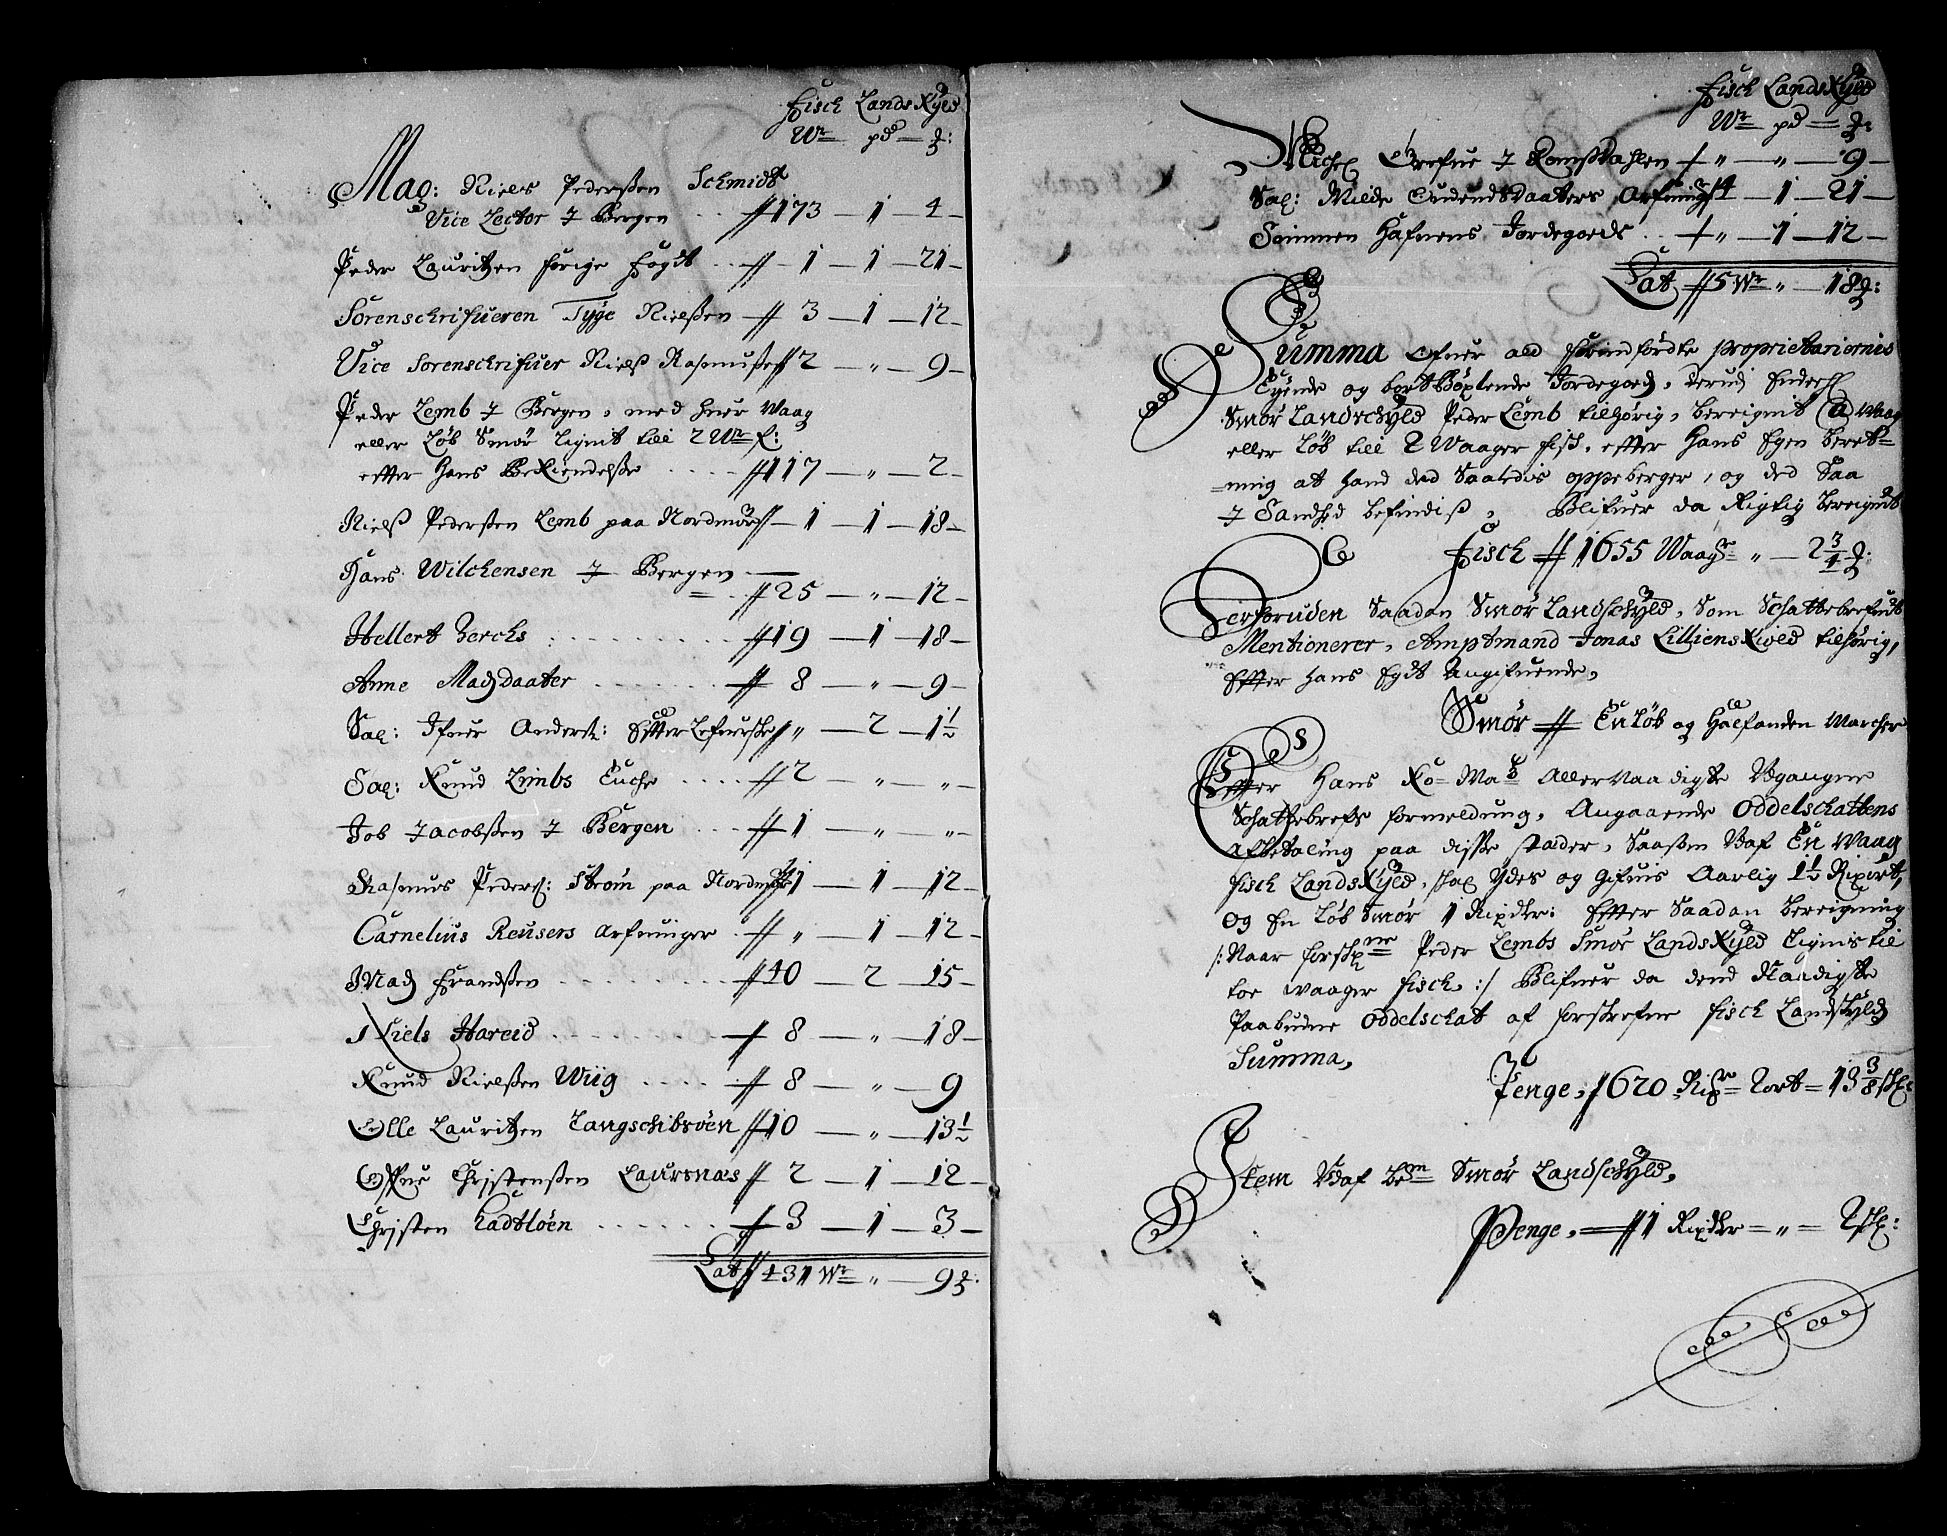 Fisch LandsKyld
Wr pd ₰:
Mag: Niels Pederßen Schmidt
Vice Lector J Bergen 173 — 1 — 4 —
Peder Lauritzen forige fogdt 1 — 1 — 21 —
Sorenschrifueren Tÿge Nielßen 3 — 1 — 12 —
Vice Sorenschrifuer Nielß Rasmusßen 2 — " — 9 —
Peder Lemb J Bergen, med huer Waag
eller Løb Smør lignit till 2 Wr f:
effter Hans Bekiendelße 117 — " — 2 —
Nielß Pederßen Lemb paa Nordmør 1 — 1 — 18 —
Hans Wilchensen J Bergen —
25 — " — 12 —
Hellert Gerchs : 19 — 1 — 18 —
Anne Madzdaater 8 — " — 9 —
Sal: Ifuer Anderß: Effter Lefuerske " — 2 — 1½
Sal: Knud Lembs Enche 2 — " — " —
Job Jacobßen J Bergen 1 — " — " —
Rasmus Peders: Strøm paa Nordmør 1 — 1 — 12 —
Carnelius Reusers Arfuinger " — 1 — 12 —
Madz Frandßen 40 — 2 — 15 —
Niels Hareid 8 — " — 18 —
Knud Nielßen Wiig 8 — " — 9
Olle Lauritzen Langschibsøen 10 — " — 13½
Christensßen Laursnæs 2 — 1 — 12 —
Christen 3 — 1 — 3 —
Lat 431 Wr " — 9 ₰:
Fisch LandsKyld
Wr pd = ₰:
Michel J Romßdahlen " — " — 9 —
Sal: Milde Gudmudsdaaters Arfuing 4 — 1 — 21 —
Simmen Hafuens Jordegoeds " — 1 — 12 —
Lat 5 Wr " — 18 ₰:
Summa Ofuer ald forindførdte proprietariernis
Eÿende og bortbøxlende Jordegoed, derudj
Smør Landschyld Peder Lemb tilhørig, bereignit a Waag
eller Løb till 2 Waager fisk, effter Hans Egen beret=
=ning at hand ded Saaledis oppeberger, og ded Saa
J Sandhed befindis, Blifuer da Rigtig bereignit
Fisch 1655 Waagr " — 2¾ ₰:
Saadan Smør Landschyld, Som Schattebrefuit
Mentionerer, Amptmand Jonas LilliensKiold tilhørig,
Effter Hans Egdt Angifuende,
Smør En Løb og Halfanden Marcher
Effter Hans Ko= Ma Aller Naadigste Udgangne
Schattebrefs formelding, Angaaende Oddelschattens
afbetaling paa disse steder, Saasom Udaf En Waag
fisch LandsKyld, skal Ydes og Gifuis Aarlig 1½ Rixort,
og En Løb Smør 1 Rixdlr: Effter Saadan bereigning
/: Naar Peder Lembs Smør LandsKyld lignis til
toe Waager fisch, :/ Blifuer da dend Naadigste
Paabudne Oddelschat af forskrefne fisch Landskyld
Summa,
Penge, 1620 Rixr 2ort = 13⅜ sk:
Item Udaf bem Smør Landschyld,
Penge, 1 Rixdlr = " = 2 sk: